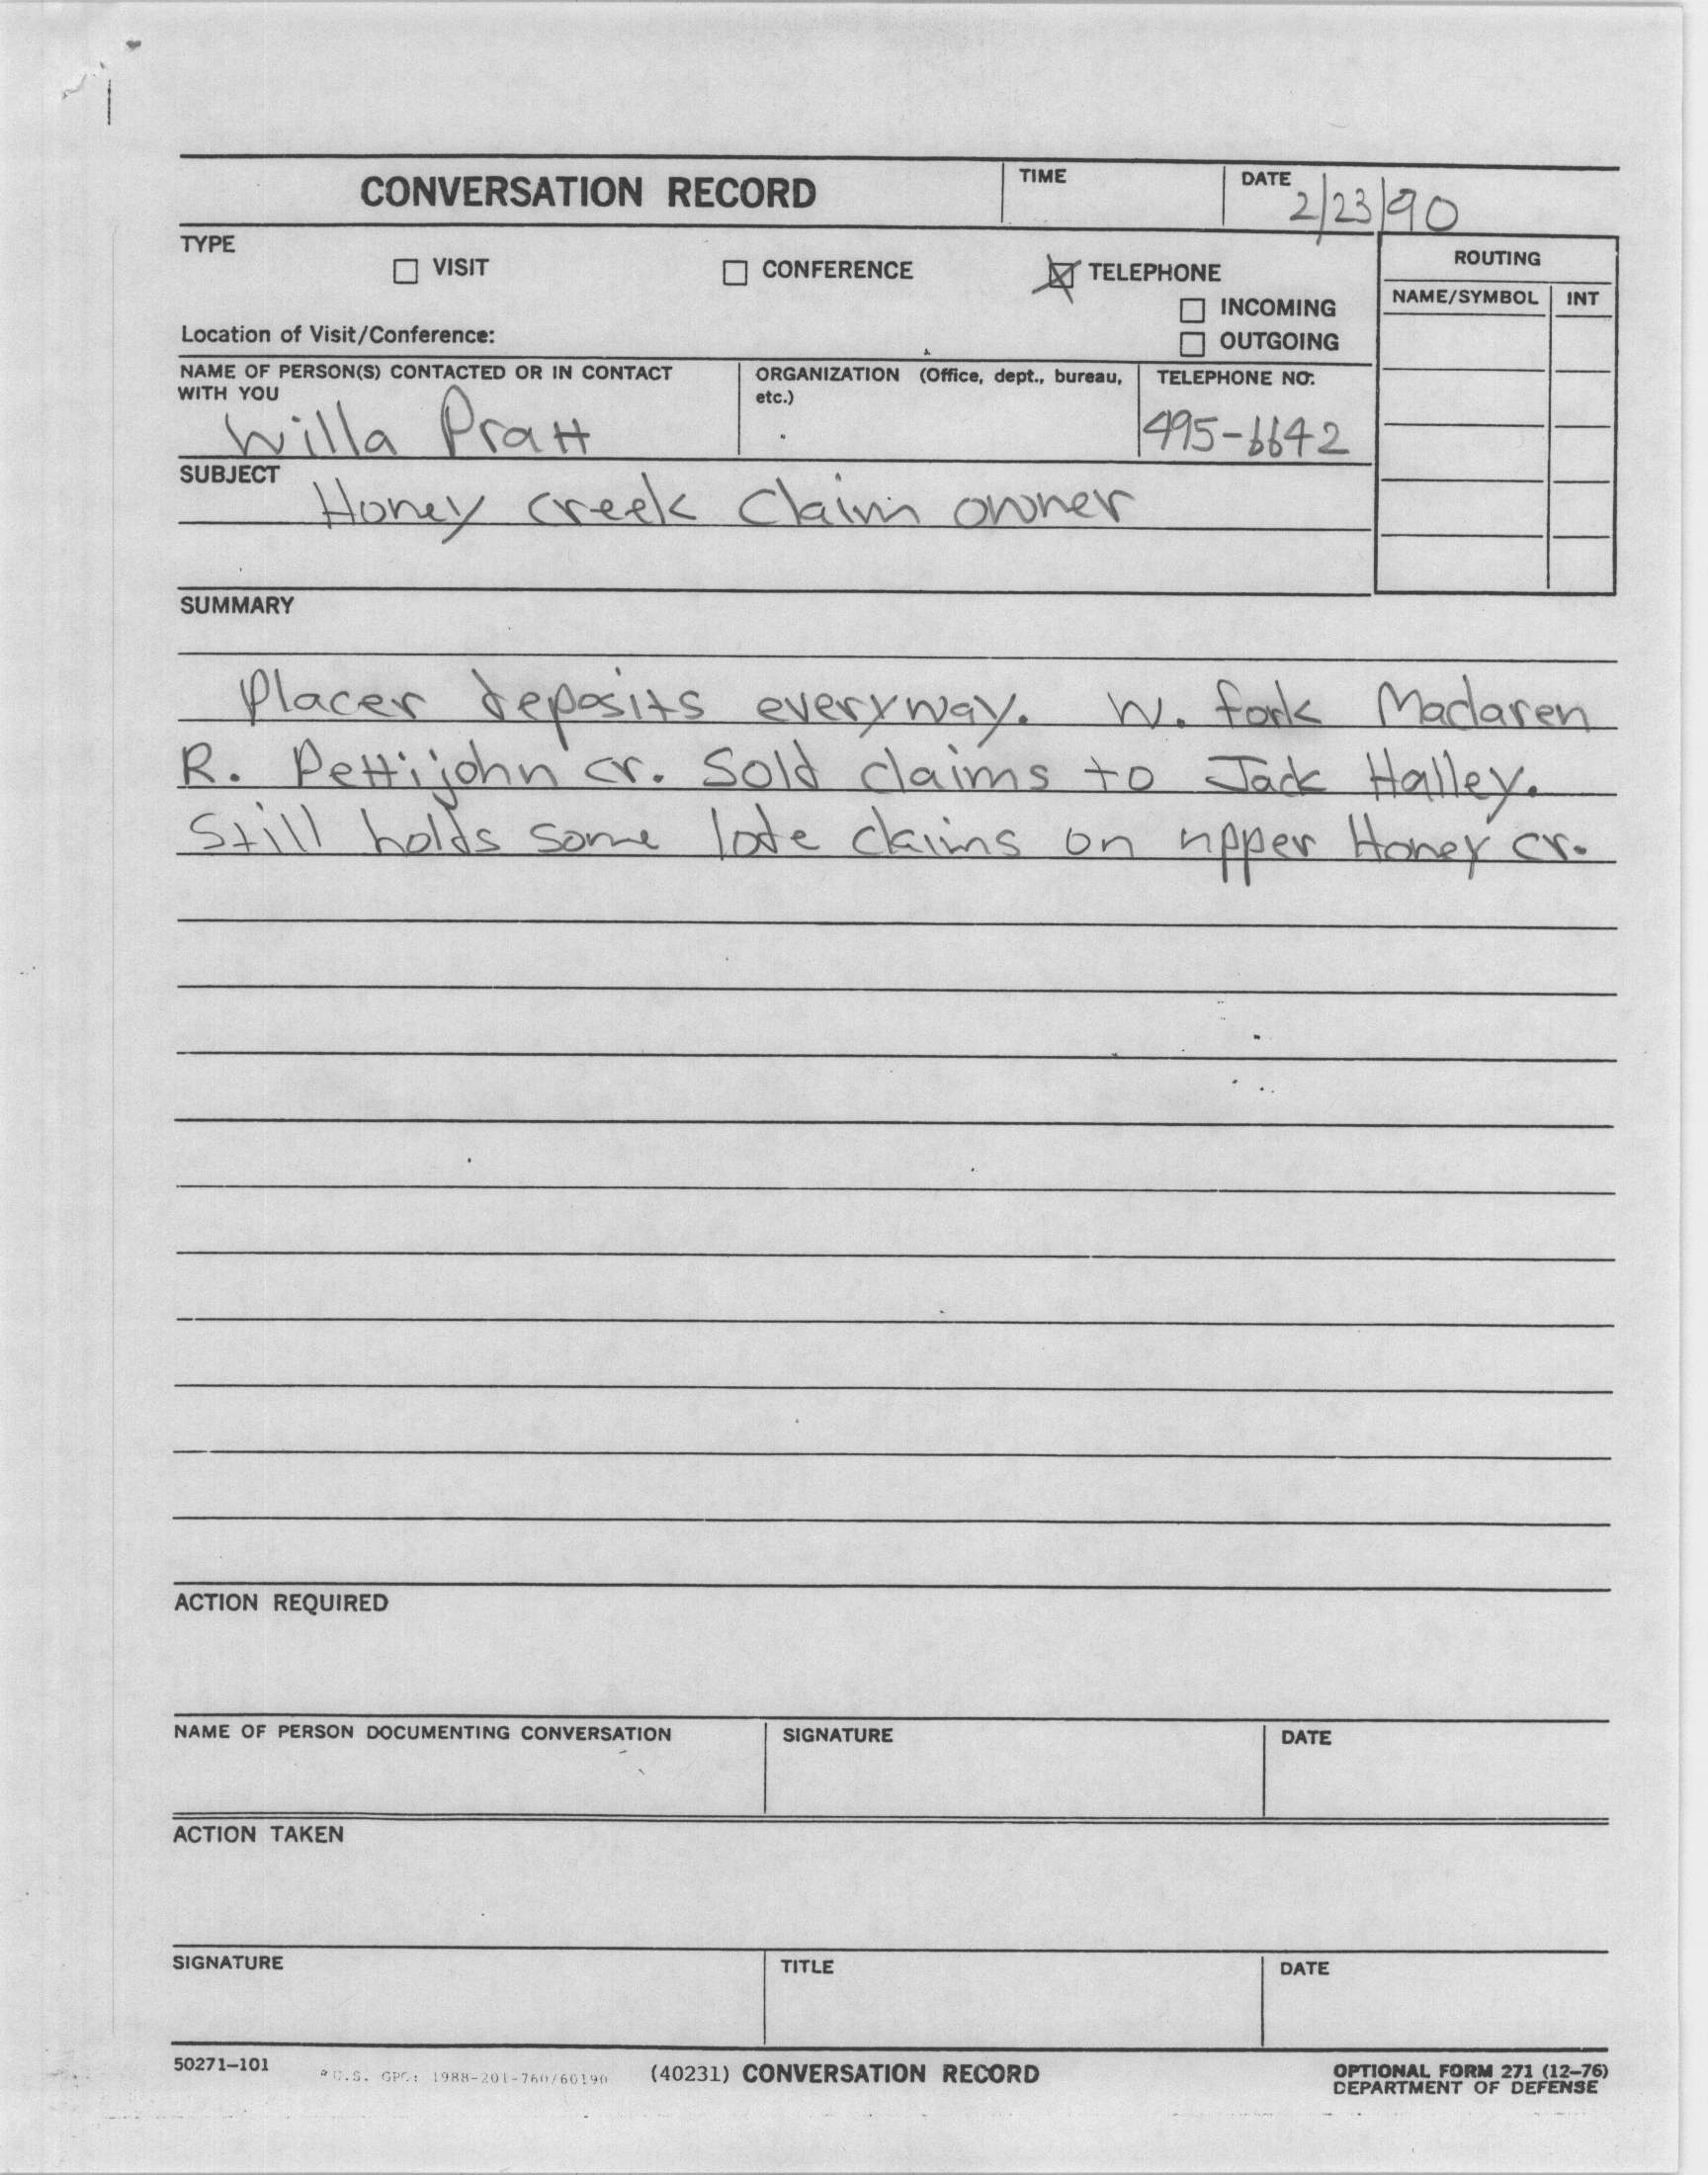 CONVERSATION RECORD
TIME
DATE 2/23/90
TYPE
VISIT
CONFERENCE
TELEPHONE
INCOMING
OUTGOING
ROUTING
NAME/SYMBOL INT
Location of Visit/Conference:
NAME OF PERSON(S) CONTACTED OR IN CONTACT
WITH YOU
Willa Pratt
ORGANIZATION (Office, dept., bureau,
etc.)
TELEPHONE NO:
495-6642
SUBJECT
Honey Creek Claim owner
SUMMARY
Placer deposits everyway. W. fork Maclaren
R. Pettijohn cr. Sold claims to Jack Halley.
Still holds some lode claims on upper Honey cr.
ACTION REQUIRED
NAME OF PERSON DOCUMENTING CONVERSATION
SIGNATURE
DATE
ACTION TAKEN
SIGNATURE
TITLE
DATE
50271-101
*U.S. GPO: 1988-201-760/60190
(40231) CONVERSATION RECORD
OPTIONAL FORM 271 (12-76)
DEPARTMENT OF DEFENSE